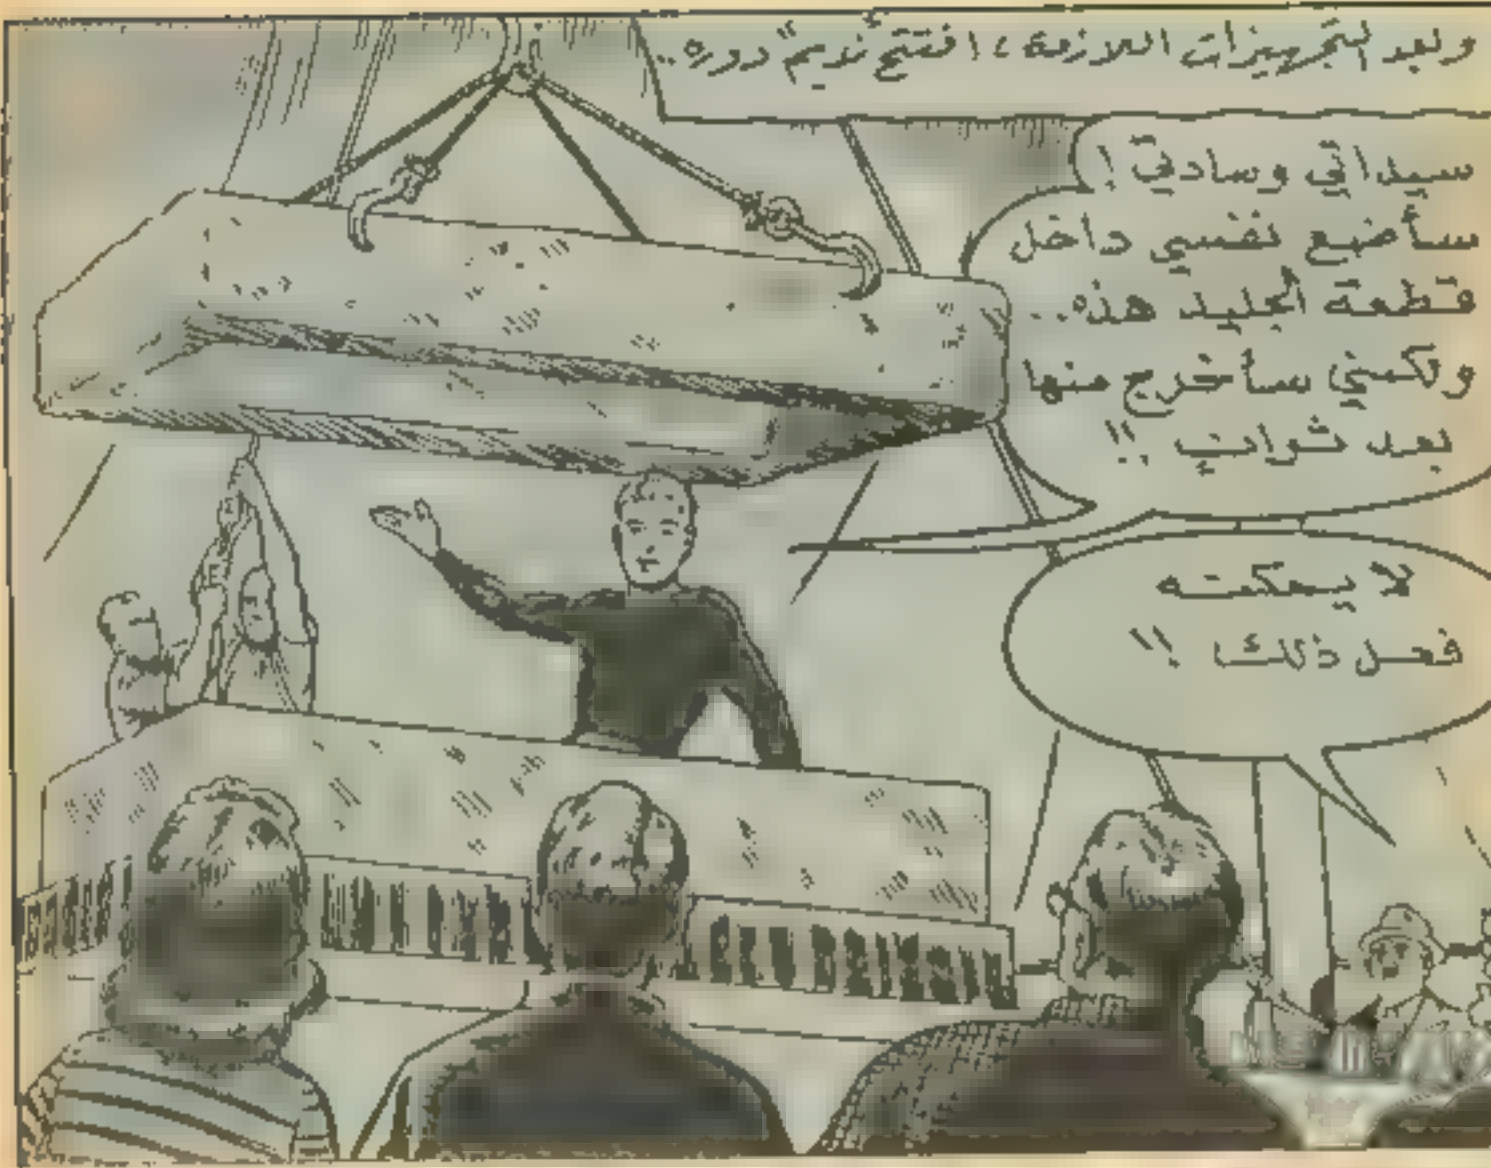 وبعد التجهيزات اللازمة، افتتح "نديم" دوره..
سيداتي وسادتي!
سأضع نفسي داخل
قطعة الجليد هذه..
ولكنني سأخرج منها
بعد ثوانٍ!!
لا يمكنه
فعل ذلك!!